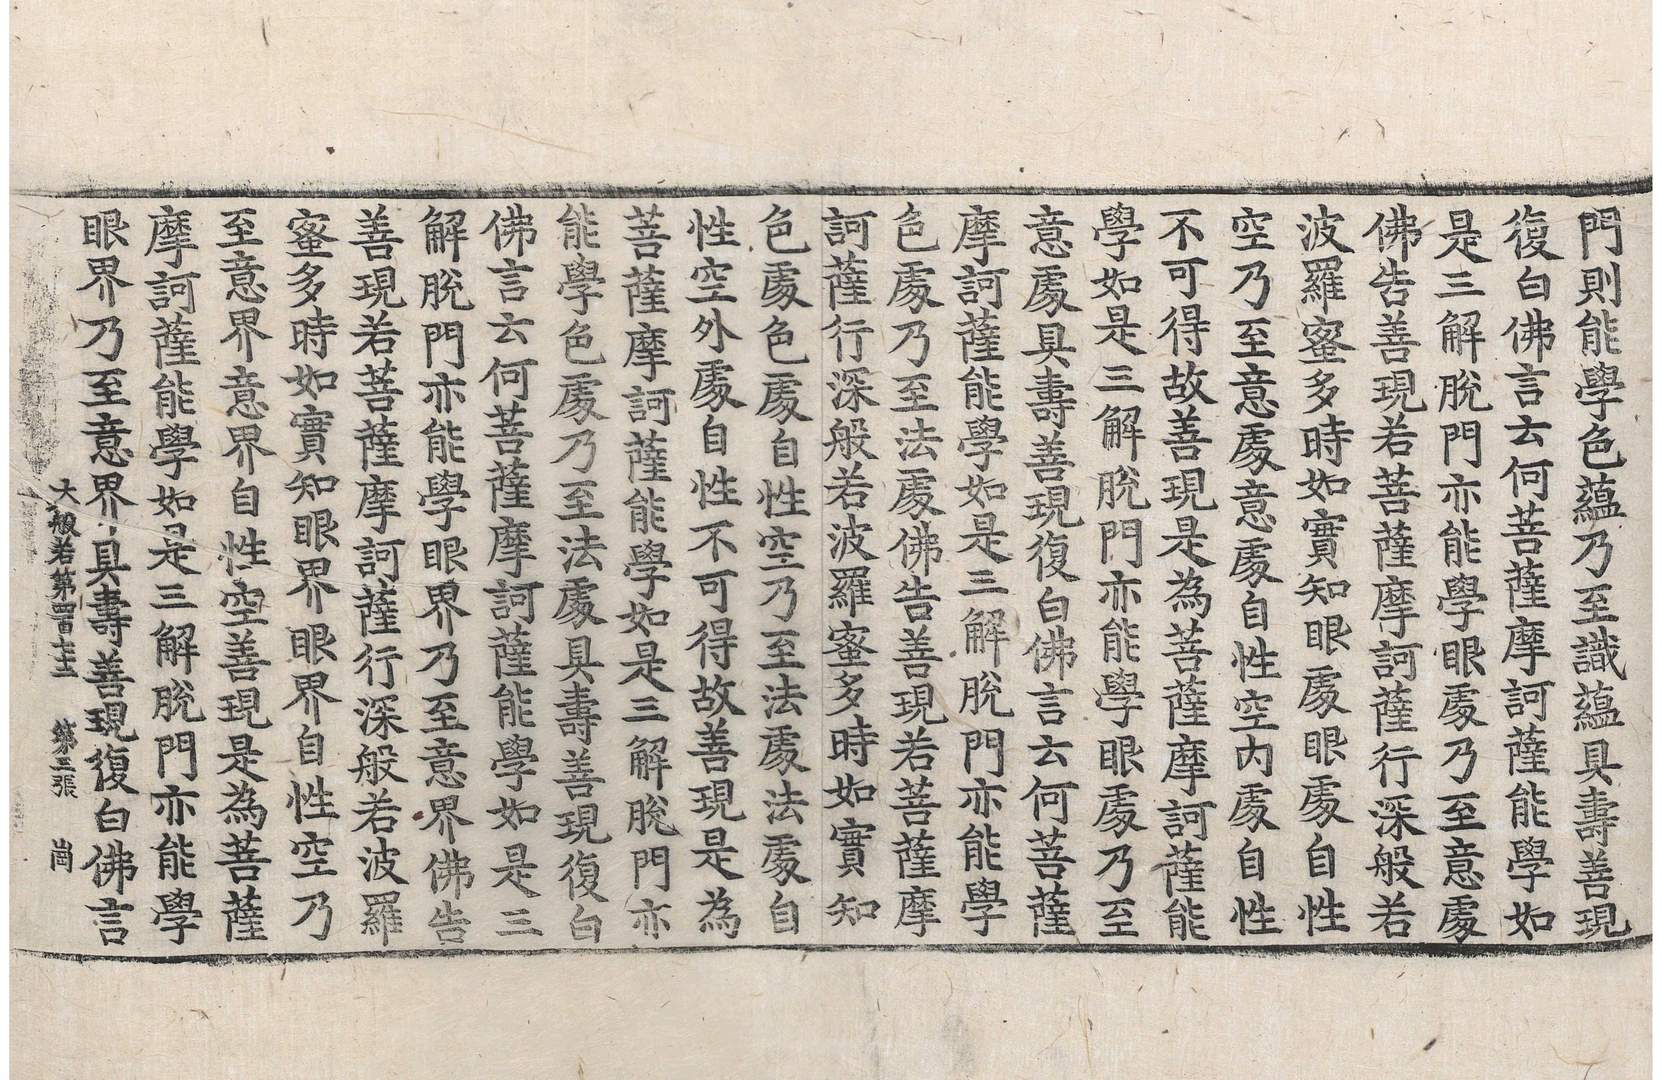 門則能學色蘊乃至識蘊具壽善現
復白佛言云何菩薩摩訶薩能學如
是三解脫門亦能學眼處乃至意處
佛告善現若菩薩摩訶薩行深般若
波羅蜜多時如實知眼處眼處自性
空乃至意處意處自性空內處自性
不可得故善現是為菩薩摩訶薩能
學如是三解脫門亦能學眼處乃至
意處具壽善現復白佛言云何菩薩
摩訶薩能學如是三解脫門亦能學
色處乃至法處佛告善現若菩薩摩
訶薩行深般若波羅蜜多時如實知
色處色處自性空乃至法處法處自
性空外處自性不可得故善現是為
菩薩摩訶薩能學如是三解脫門亦
能學色處乃至法處具壽善現復白
佛言云何菩薩摩訶薩能學如是三
解脫門亦能學眼界乃至意界佛告
善現若菩薩摩訶薩行深般若波羅
蜜多時如實知眼界眼界自性空乃
至意界意界自性空善現是為菩薩
摩訶薩能學如是三解脫門亦能學
眼界乃至意界具壽善現復白佛言
大般若第四百七十二 第三張 崗